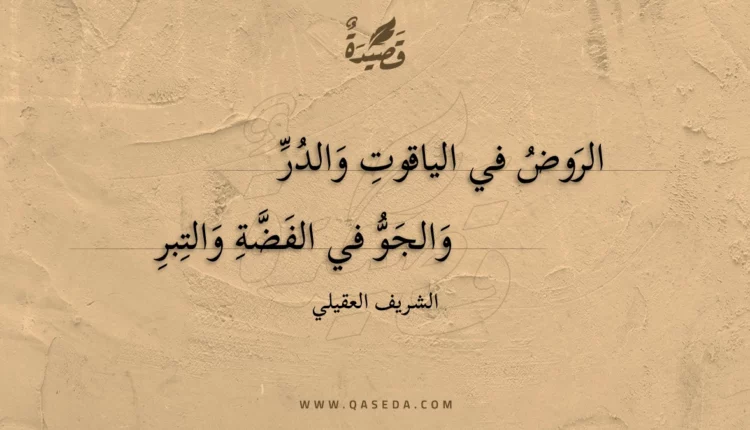 قَصِيدَةٌ
الرَوضُ في الياقوتِ وَالدُرِّ
وَالجَوُّ في الفَضَّةِ وَالتِبرِ
الشريف العقيلي
WWW.QASEDA.COM